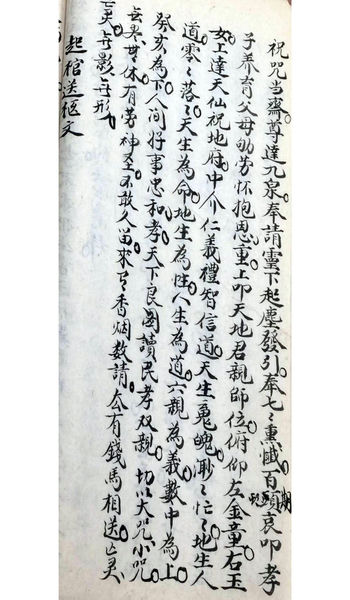 祝咒当齋尊達九泉奉請靈下起塵發引奉七〻熏懺百期哀叩孝
子养育父母劬劳怀抱恩重上叩天地君親師位俯仰左金童右玉
女上達天仙祝地府中介仁義禮智信道天生䰟魄耿〻忙〻地生人
道零〻落〻天生為命地生為性人生為道六親為義數中為上
癸亥為下人间好事忠和孝天下良圖讀民孝双親切以大咒小咒
無界
休有劳神圣不敢久留來了香烟数請么有錢馬相送亡灵
亡灵無影無形
起棺送柩文